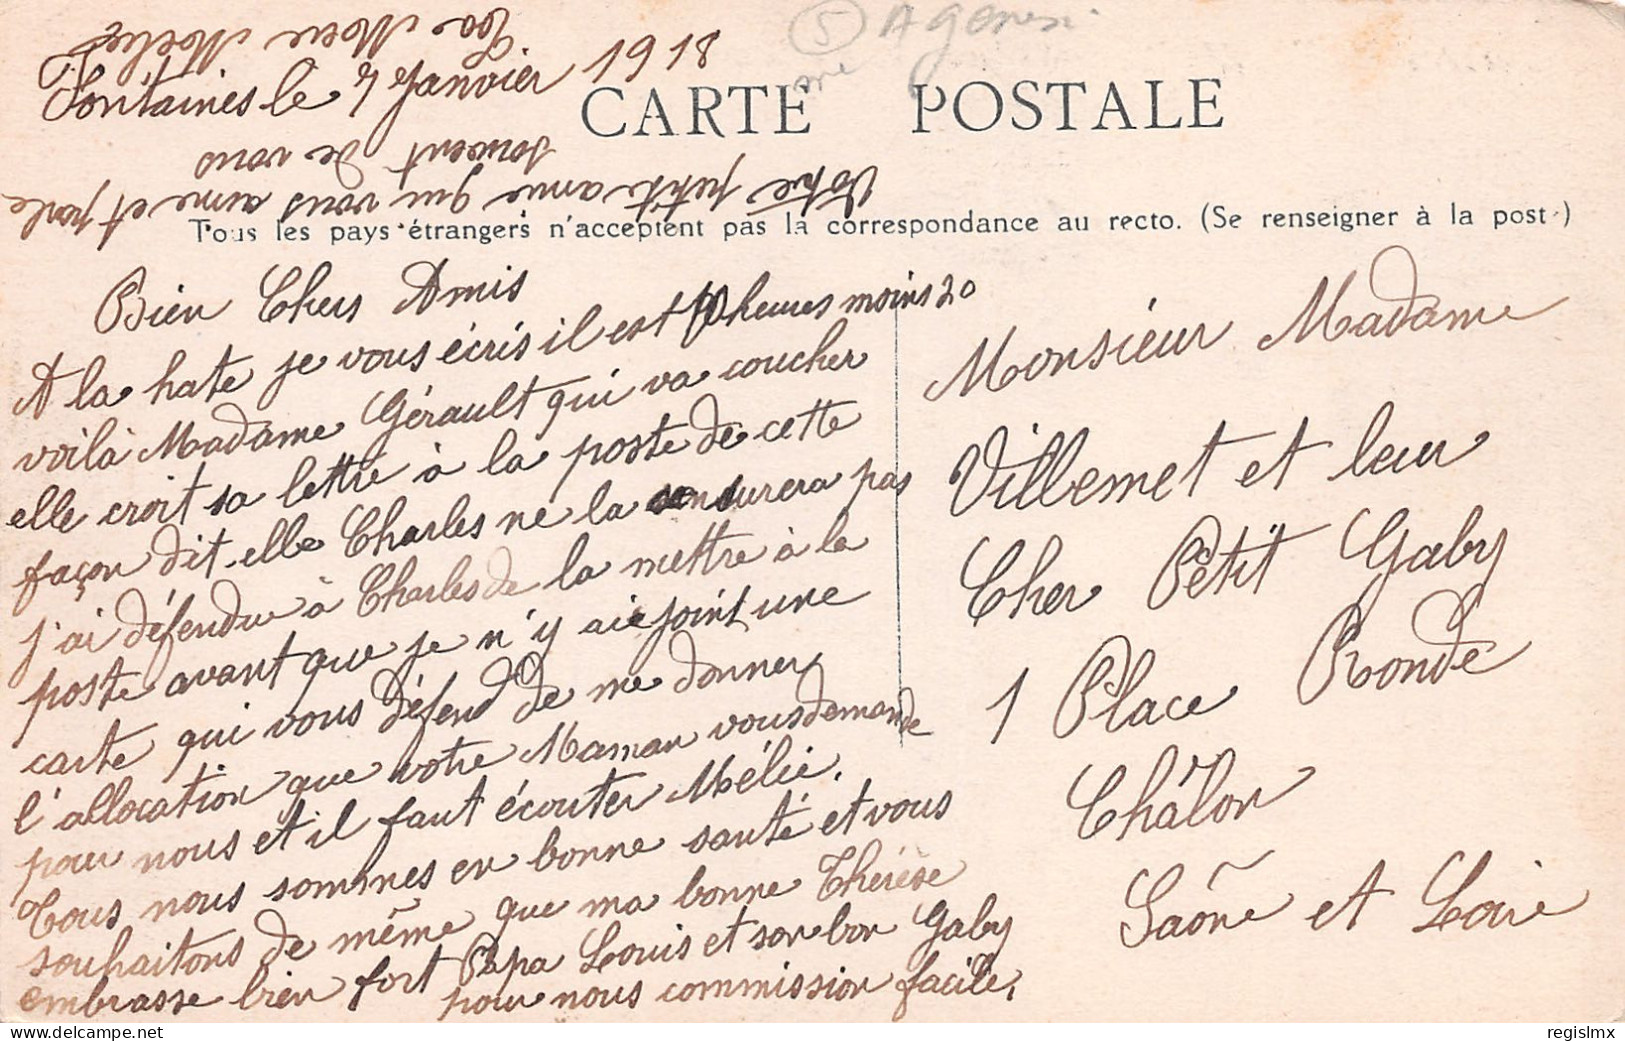 5 A Gener
Fontaines le 7 Janvier 1918
CARTE POSTALE
Tous les pays étrangers n'acceptent pas la correspondance au recto. (Se renseigner à la poste)
Bien Chers Amis
A la hate je vous écris il est 10 heures moins 20
voilà Madame Gérault qui va coucher
elle croit sa lettre à la poste de cette
façon dit-elle Charles ne la censurera pas
j'ai défendu à Charles de la mettre à la
poste avant que je n'y aie joint une
carte qui vous défend de me donner
l'allocation que votre Maman vous demande
pour nous et il faut écouter Mélie.
Tous nous sommes en bonne santé et vous
souhaitons de même que ma bonne Thérèse
embrasse bien fort Papa Louis et son bon Gaby
pour nous commission facile.
Votre petite amie qui vous aime et parle
souvent de vous
La Mère Mélie
Monsieur Madame
Villemet et leur
Cher Petit Gaby
1 Place Ronde
Châlon
Saône et Loire
regislmx